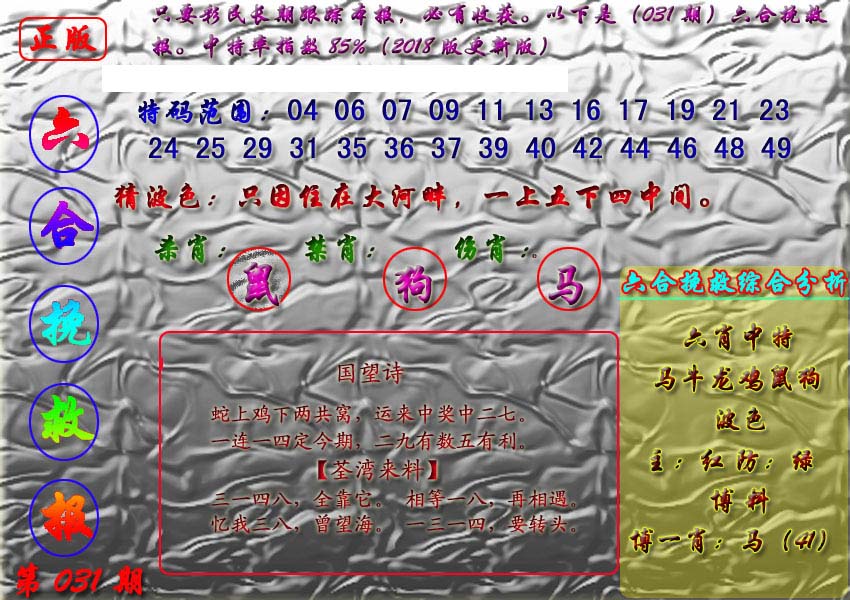 正版
只要彩民长期跟踪本报，必有收获。以下是（031期）六合挽救
报。中特率指数85%（2018版更新版）
特码范围：04 06 07 09 11 13 16 17 19 21 23
24 25 29 31 35 36 37 39 40 42 44 46 48 49
猜波色：只因住在大河畔，一上五下四中间。
六合挽救报
杀肖：鼠 禁肖：狗 伤肖：马
国望诗
蛇上鸡下两共窝，运来中奖中二七。
一连一四定今期，二九有数五有利。
【荃湾来料】
三一四八，全靠它。 相等一八，再相遇。
忆我三八，曾望海。 一三一四，要转头。
六合挽救综合分析
六肖中特
马牛龙鸡鼠狗
波色
主：红 防：绿
博料
博一肖：马（41）
第031期